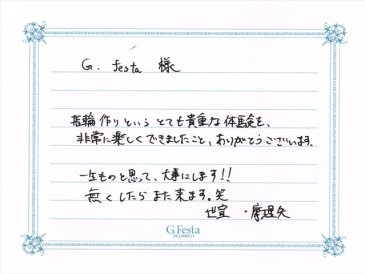 G. festa 様
指輪作りという とても貴重な体験を、
非常に楽しくできましたこと、ありがとうございます。
一生ものと思って、大事にします!!
無くしたらまた来ます。笑
世宣 ・摩理矢
G.Festa